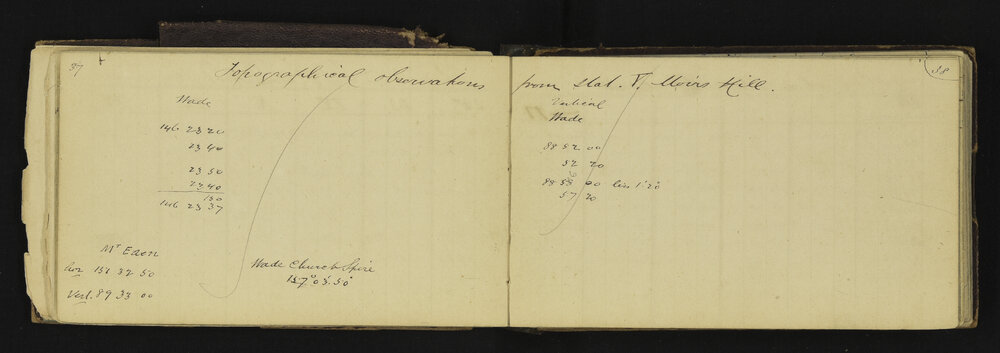 37
Topographical observations from Stat. V, Moirs Hill.
38
Wade
146 23 20
23 40
23 50
23 40
150
146 23 37
Mr Eason
hor 151 32 50
Vert. 89 33 00
Wade Church Spire
157° 03' 30"
Vertical
Wade
88 52 00
52 20
88 53 00 1' 20"
57 20